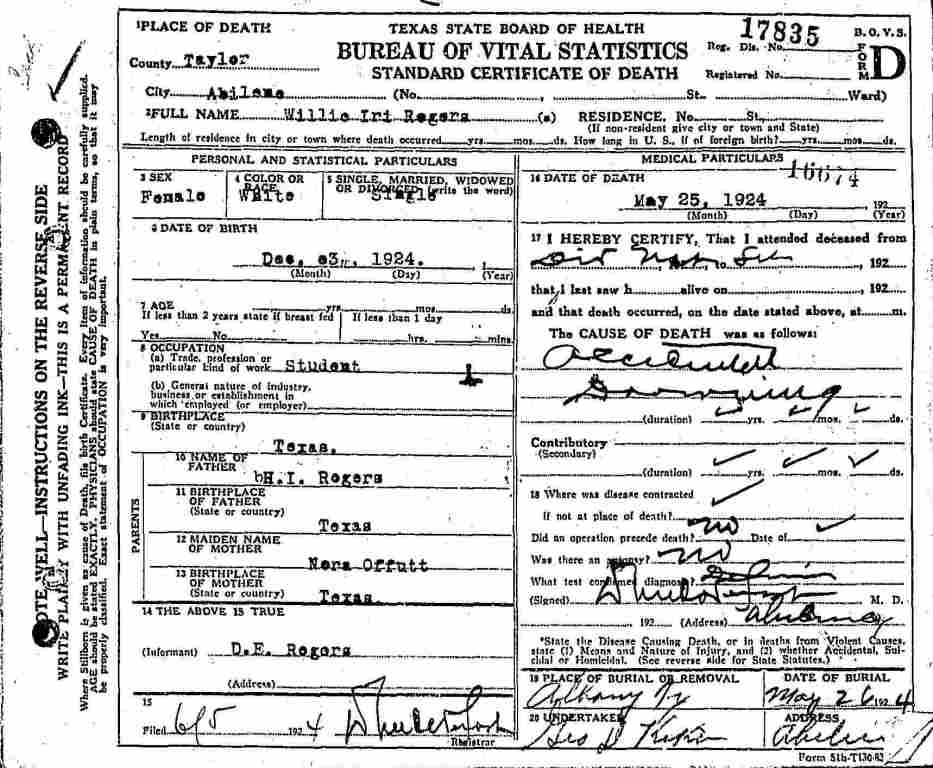 1PLACE OF DEATH
County Taylor
TEXAS STATE BOARD OF HEALTH
BUREAU OF VITAL STATISTICS
STANDARD CERTIFICATE OF DEATH
17835
Reg. Dis. No.
Registered No.
B. O. V. S.
FORM D
City Abilene (No. , St. Ward)
2FULL NAME Willie Iri Rogers (a) RESIDENCE. No. St.,
(If non-resident give city or town and State)
Length of residence in city or town where death occurred yrs. mos. ds. How long in U. S., if of foreign birth? yrs. mos. ds.
PERSONAL AND STATISTICAL PARTICULARS
3 SEX
Female
4 COLOR OR RACE
White
5 SINGLE, MARRIED, WIDOWED
OR DIVORCED (write the word)
Single
6 DATE OF BIRTH
Dec. 1924.
(Month) (Day) (Year)
7 AGE yrs. mos. ds.
If less than 2 years state if breast fed
If less than 1 day
Yes No
hrs. mins.
8 OCCUPATION
(a) Trade, profession or
particular kind of work Student
(b) General nature of industry,
business or establishment in
which employed (or employer)
9 BIRTHPLACE
(State or country)
Texas.
PARENTS
10 NAME OF
FATHER
H.I. Rogers
11 BIRTHPLACE
OF FATHER
(State or country)
Texas
12 MAIDEN NAME
OF MOTHER
Nora Offutt
13 BIRTHPLACE
OF MOTHER
(State or country) Texas.
14 THE ABOVE IS TRUE
(Informant) D.E. Rogers
(Address)
15
Filed 6/5 1924
Registrar
MEDICAL PARTICULARS
16674
16 DATE OF DEATH
May 25, 1924 192
(Month) (Day) (Year)
17 I HEREBY CERTIFY, That I attended deceased from
Did Not , to See , 192
that I last saw h alive on , 192
and that death occurred, on the date stated above, at m.
The CAUSE OF DEATH was as follows:
Accidental
Drowning
(duration) yrs. mos. ds.
Contributory
(Secondary)
(duration) yrs. mos. ds.
18 Where was disease contracted
If not at place of death?
Did an operation precede death? no Date of
Was there an autopsy? no
What test confirmed diagnosis?
(Signed) M. D.
192 (Address) Abilene
*State the Disease Causing Death, or in deaths from Violent Causes,
state (1) Means and Nature of Injury, and (2) whether Accidental, Sui-
cidal or Homicidal. (See reverse side for State Statutes.)
19 PLACE OF BURIAL OR REMOVAL
Albany
DATE OF BURIAL
May 26 1924
20 UNDERTAKER
Geo D
ADDRESS
Abilene
Form 51b-T130-63
NOTE WELL—INSTRUCTIONS ON THE REVERSE SIDE
WRITE PLAINLY WITH UNFADING INK—THIS IS A PERMANENT RECORD
Where Stillborn is given as cause of Death, file birth Certificate. Every item of information should be carefully supplied.
AGE should be stated EXACTLY. PHYSICIANS should state CAUSE OF DEATH in plain terms, so that it may
be properly classified. Exact statement of OCCUPATION is very important.